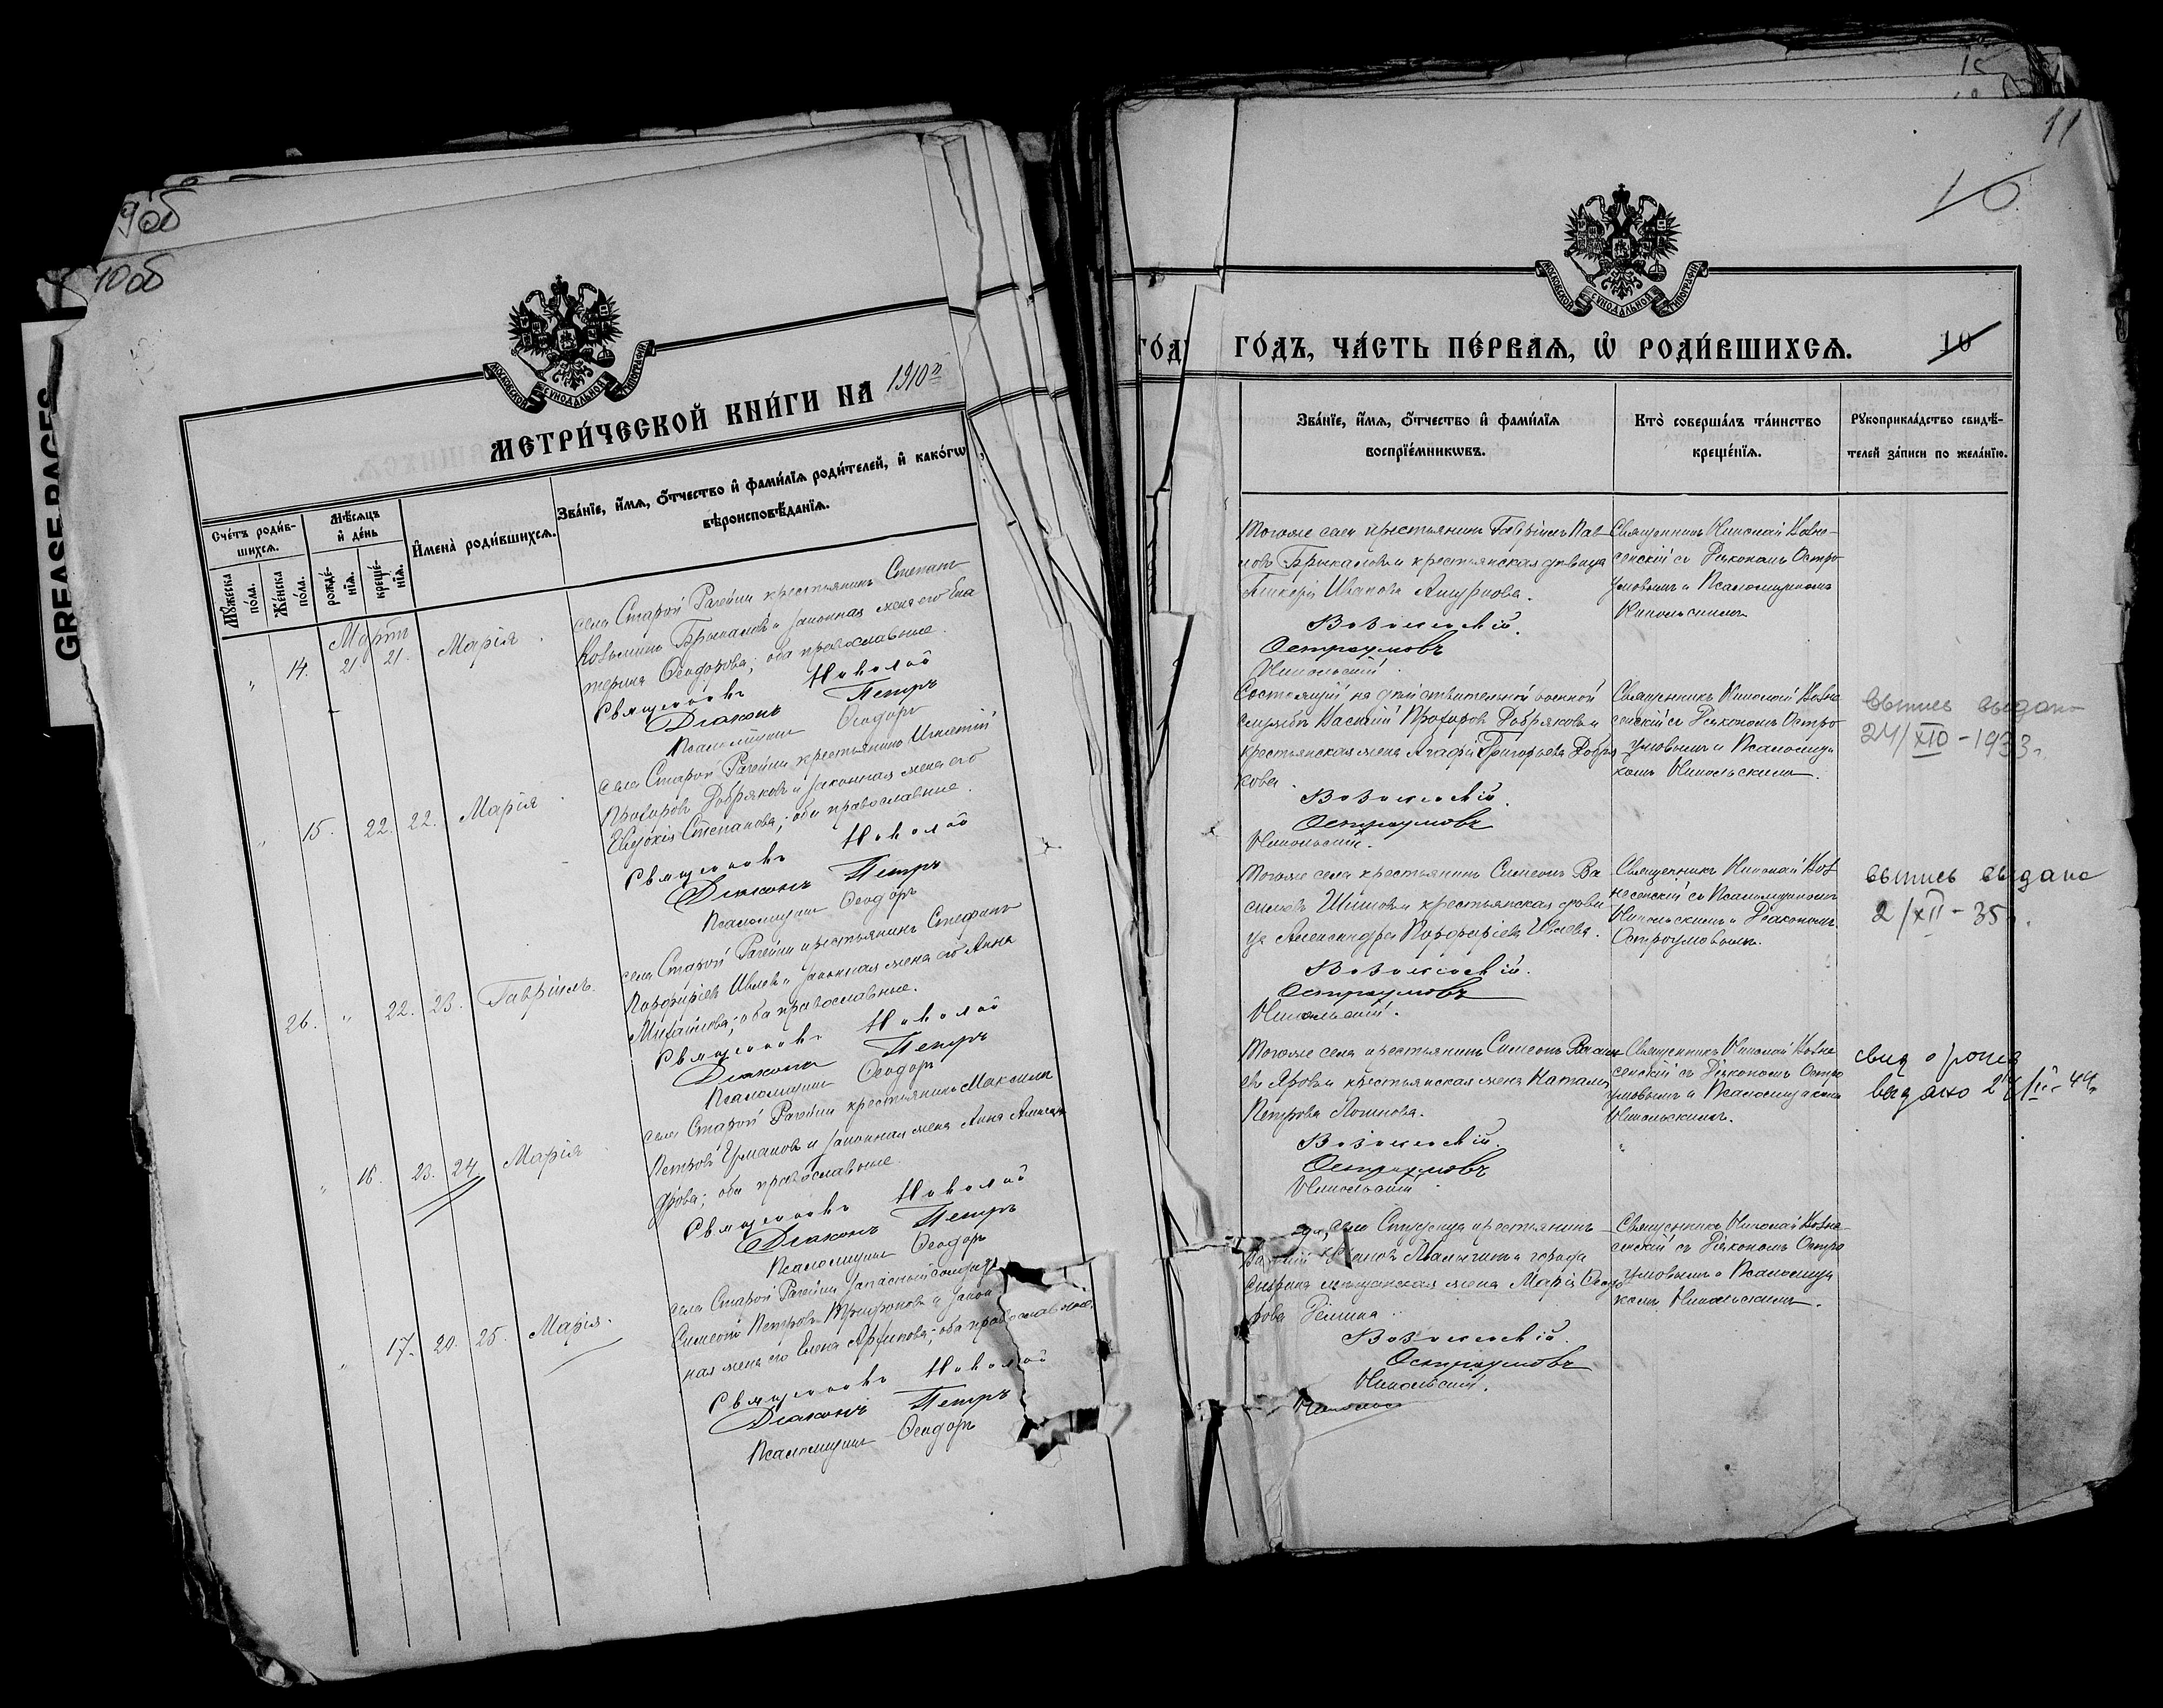 GREASE PAGES
9об
10об
МОСКОВСКОЙ СѴНОДАЛЬНОЙ ТИПОГРАФІИ
МЕТРИ́ЧЕСКОЙ КНИ́ГИ НА 1910й
Сче́тъ роди́в-
шихсѧ.
Мꙋ́жеска
по́ла.
Же́нска
по́ла.
Мѣ́сѧцъ
и҆ де́нь
рожде́-
нїѧ.
креще́-
нїѧ.
И҆мена̀ роди́вшихсѧ.
Зва́нїе, и҆́мѧ, ѻ҆́тчество и҆ фами́лїѧ роди́телей, и҆ како́гѡ
вѣроисповѣ́данїѧ.
Мартъ
" 14. 21. 21. Марія.
села Старой Рачейки крестьянинъ Степанъ
Козьминъ Брыкаловъ и законная жена его Ека
терина Ѳеодорова; оба православные.
Священникъ Николай
Діаконъ Петръ
Псаломщикъ Ѳеодоръ
" 15. 22. 22. Марія.
села Старой Рачейки крестьянинъ Игнатій
Прохоровъ Добряковъ и законная жена его
Евдокія Степанова; оба православные.
Священникъ Николай
Діаконъ Петръ
Псаломщикъ Ѳеодоръ
26. " 22. 23. Гавріилъ.
села Старой Рачейки крестьянинъ Стефанъ
Порфиріевъ Ивлевъ и законная жена его Анна
Михайлова; оба православные.
Священникъ Николай
Діаконъ Петръ
Псаломщикъ Ѳеодоръ
" 16. 23. 24. Марія
села Старой Рачейки крестьянинъ Максимъ
Петровъ и законная жена Анна Алексан
дрова; оба православные.
Священникъ Николай
Діаконъ Петръ
Псаломщикъ Ѳеодоръ
" 17. 20. 25. Марія.
села Старой Рачейки запасный солдатъ
Симеонъ Петровъ и закон
ная жена его Елена; оба православные.
Священникъ Николай
Діаконъ Петръ
Псаломщикъ Ѳеодоръ
15
11
10
МОСКОВСКОЙ СѴНОДАЛЬНОЙ ТИПОГРАФІИ
ГО́ДЪ, ЧА́СТЬ ПЕ́РВАѦ, Ѡ҆ РОДИ́ВШИХСѦ. 10
Зва́нїе, и҆́мѧ, ѻ҆́тчество и҆ фами́лїѧ
воспрїе́мникѡвъ.
Кто̀ соверша́лъ та́инство
креще́нїѧ.
Рꙋкоприкла́дство свидѣ́-
телей за́писи по жела́нїю.
Тогоже села крестьянинъ Гавріилъ Пав
ловъ Брыкаловъ и крестьянская дѣвица
Гликерія Иванова
Вознесенскій.
Остроумовъ
Никольскій.
Священникъ Николай Возне-
сенскій съ Діакономъ Остро
умовымъ и Псаломщикомъ
Никольскимъ
Состоящій на дѣйствительной военной
службѣ Василій Прохоровъ Добряковъ и
крестьянская жена Агафія Григорьева Добря
кова.
Вознесенскій.
Остроумовъ
Никольскій.
Священникъ Николай Возне
сенскій съ Діакономъ Остро
умовымъ и Псаломщи
комъ Никольскимъ.
выпись выдана
24/XII-1933г.
Тогоже села крестьянинъ Симеонъ Ва
сильевъ и крестьянская дѣви
ца Александра Порфиріева Ивлева.
Вознесенскій.
Остроумовъ
Никольскій.
Священникъ Николай Воз
несенскій съ Псаломщикомъ
Никольскимъ и Діакономъ
Остроумовымъ.
выпись выдана
2/XII-35г.
Тогоже села крестьянинъ Симеонъ Василь
евъ Яровъ и крестьянская жена Наталія
Петрова Логинова.
Вознесенскій.
Остроумовъ
Никольскій
Священникъ Николай Возне
сенскій съ Діакономъ Остро
умовымъ и Псаломщикомъ
Никольскимъ.
выдано
села крестьянинъ
Василій Ивановъ и города
Сызрана мѣщанская жена Марія Ѳеодо
рова
Вознесенскій.
Остроумовъ
Никольскій.
Священникъ Николай Возне
сенскій съ Діакономъ Остро
умовымъ и Псаломщи
комъ Никольскимъ.